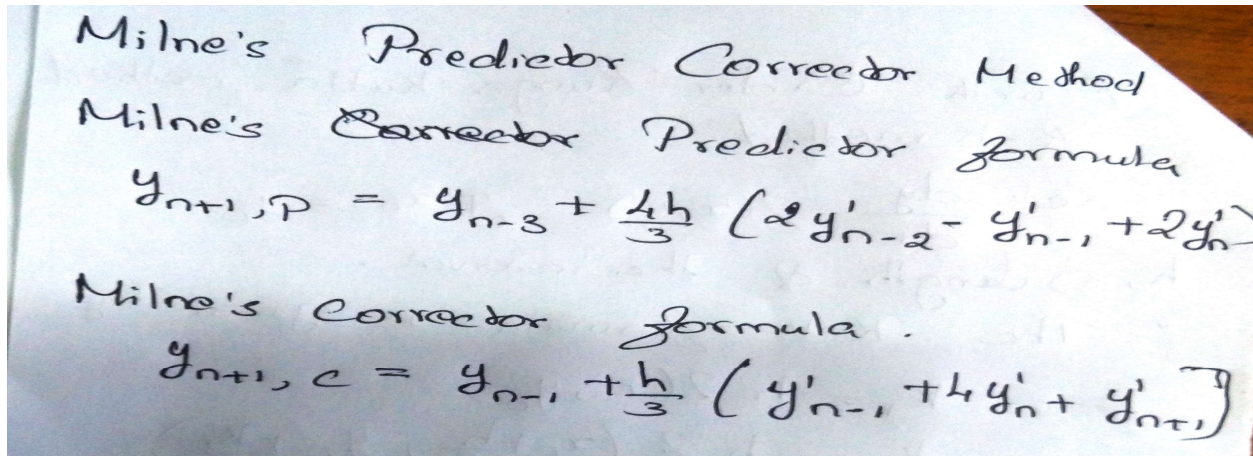 Milne's Predictor Corrector Method
Milne's Corrector Predictor formula
y_{n+1},P = y_{n-3} + 4h/3 (2y'_{n-2} - y'_{n-1} + 2y'_n)
Milne's Corrector formula.
y_{n+1}, c = y_{n-1} + h/3 (y'_{n-1} + 4y'_n + y'_{n+1}]